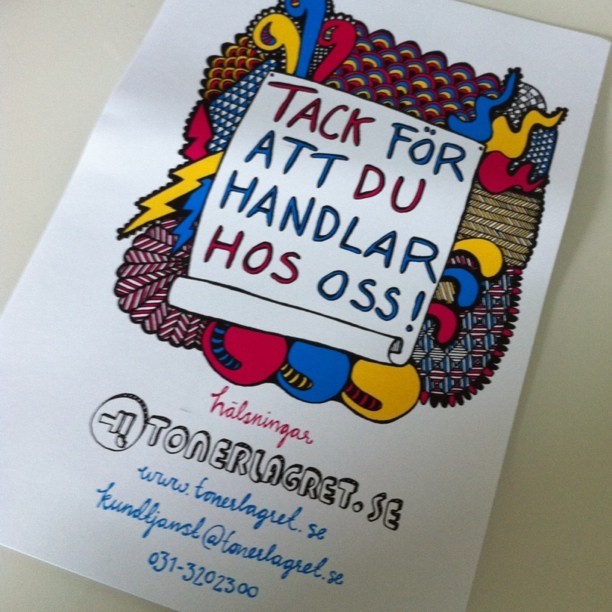 TACK FÖR
ATT DU
HANDLAR
HOS OSS!
hälsningar
TONERLAGRET.SE
www.tonerlagret.se
kundtjanst@tonerlagret.se
031-3202300